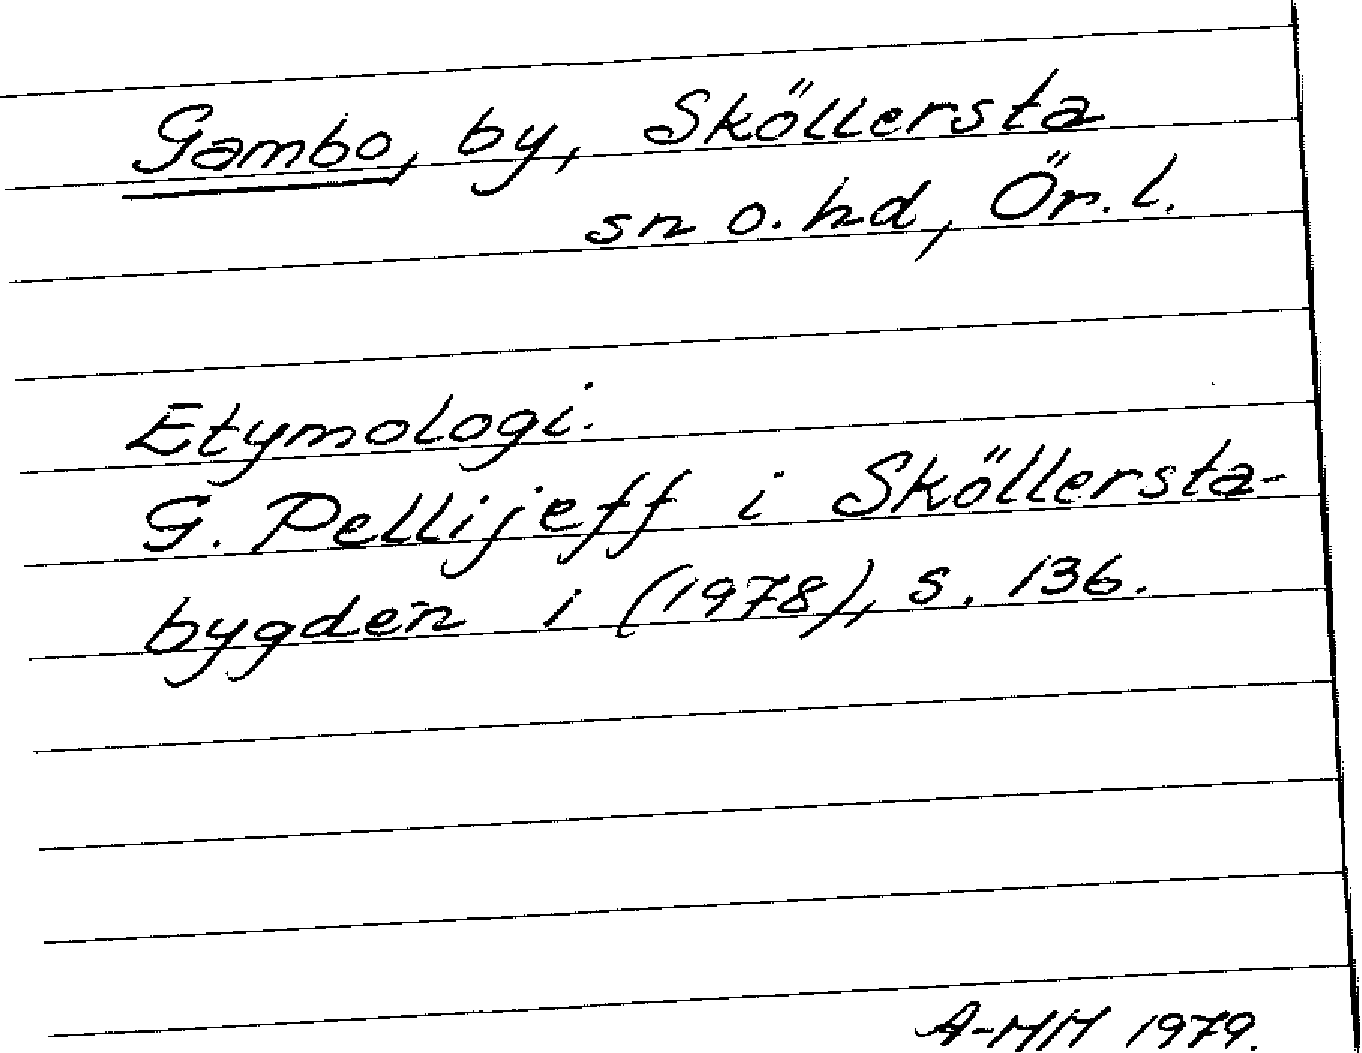 Gambo, by, Sköllersta
sn o. hd, Ör. l.
Etymologi.
G. Pellijeff i Sköllersta-
bygden 1 (1978), s. 136.
A-MH 1979.